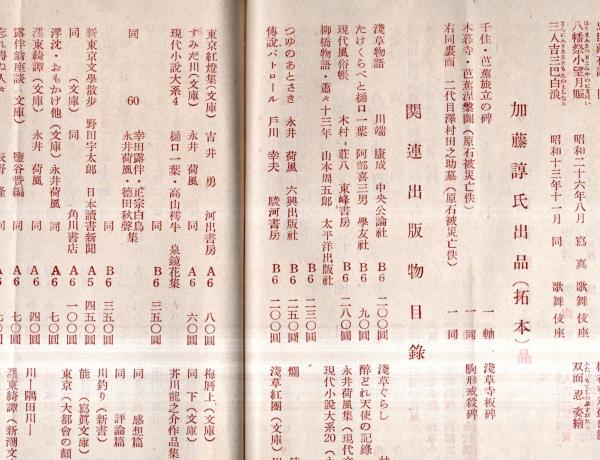 八幡祭小望月賑 昭和二十六年八月 寫真 歌舞伎座
三人吉三巴白浪 昭和十三年十一月 同 歌舞伎座
双面忍姿繪
加藤諄氏出品(拓本)品
千住・芭蕉旅立の碑 一軸
木暮寺・芭蕉涅槃圖(原石被災亡佚) 一同
右同裏面 二代目澤村田之助墓(原石被災亡佚) 一同
淺草寺板碑
駒形戒殺碑
関連出版物目錄
淺草物語 川端康成 中央公論社 B6 二〇〇圓
たけくらべと樋口一葉 阿部喜三男 學友社 B6 九〇圓
現代風俗帳 木村莊八 東峰書房 B6 二八〇圓
柳橋物語・蕭々十三年 山本周五郎 太平洋出版社 B6 二三〇圓
つゆのあとさき 永井荷風 六興出版社 B6 二五〇圓
傳說パトロール 戶川幸夫 駿河書房 B6 二〇〇圓
淺草ぐらし
醉どれ天使の記錄
永井荷風集(現代
現代小説大系20(
爛
淺草紅團(文庫)
東京紅燈集(文庫) 吉井勇 河出書房 A6 八〇圓
すみだ川(文庫) 永井荷風 同 A6 六〇圓
現代小説大系4 樋口一葉・高山樗牛 泉鏡花集 同 B6 三五〇圓
同 60 幸田露伴・正宗白鳥集 永井荷風・德田秋聲 同 B6 三五〇圓
新東京文學散步 野田宇太郎 日本讀書新聞 A5 四五〇圓
同(文庫) 同 角川書店 A6 一〇〇圓
濹東綺譚(文庫) 永井荷風 同 A6 四〇圓
浮沈・おもかげ他(文庫) 永井荷風 同 A6 七〇圓
露伴翁座談(文庫) 鹽谷贊編 同 A6 七〇圓
忘れ得ぬ人々 辰野隆 同 A6 七〇圓
梅曆上、(文庫)
同 下(文庫)
芥川龍之介作品集
同 感想篇
同 評論篇
川釣り(新書)
能(寫眞文庫)
東京(大都會の顏
川―隅田川―
濹東綺譚(新潮文